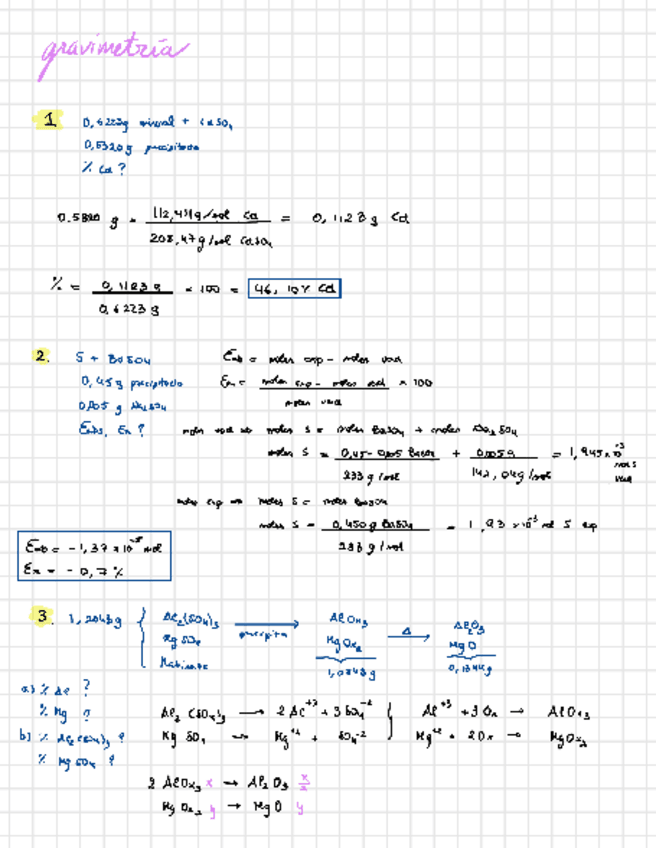 gravimetría
1 0,6223g mineral + CdSO4
0,5320g precipitado
% Cd ?
0.5320 g · 112,411g/mol Cd / 208,47g/mol CdSO4 = 0,1123 g Cd
% = 0,1123 g / 0,6223 g × 100 = 46,10% Cd
2. S + BaSO4
0,45g precipitado
0,005 g Na2SO4
Eabs, Er ?
Eab = moles exp - moles verd
Er = moles exp - moles verd / moles verd × 100
moles S = moles BaSO4 + moles Na2SO4
moles S = 0,45-0,005 BaSO4 / 233 g/mol + 0,005g / 142,04g/mol = 1,945×10⁻³ mol S verd
moles exp ⇒ moles S = moles BaSO4
moles S = 0,450g BaSO4 / 233 g/mol = 1,93 ×10⁻³ mol S exp
Eab = -1,37 ×10⁻⁵ mol
Er = -0,7 %
3. 1,2048g { Al2(SO4)3
MgSO4
precipita
AlOx3
MgOx2
Δ
Al2O3
MgO
1,0843g
0,1344g
a) % Al ?
% Mg ?
b) % Al2(SO4)3 ?
% MgSO4 ?
Al2(SO4)3 → 2 Al⁺³ + 3 SO4⁻²
MgSO4 → Mg⁺² + SO4⁻²
Al⁺³ + 3Ox → AlOx3
Mg⁺² + 2Ox → MgOx2
2 AlOx3 x → Al2O3 x/2
MgOx2 y → MgO y